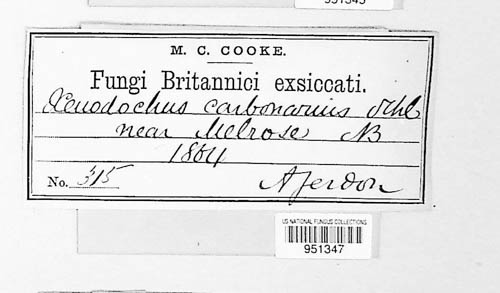 951345
M. C. COOKE.
Fungi Britannici exsiccati.
Xenodochus carbonarius Schl
near Melrose NB
1864
No. 315
A Jerdon
US NATIONAL FUNGUS COLLECTIONS
951347